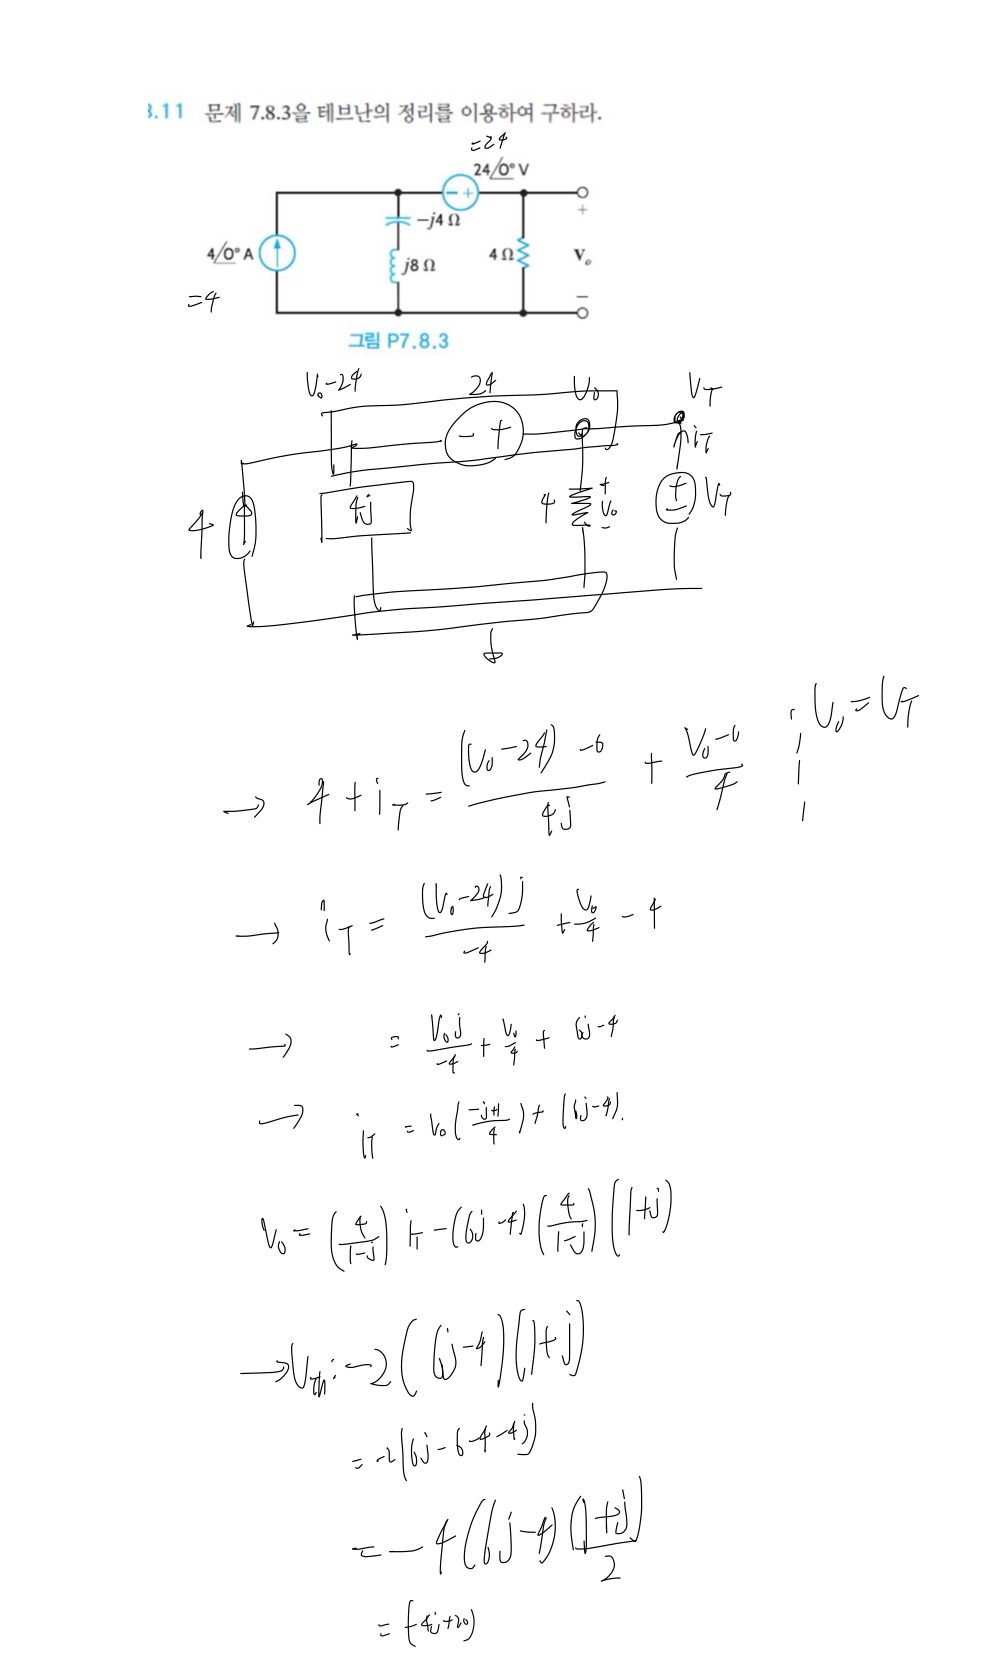 3.11 문제 7.8.3을 테브난의 정리를 이용하여 구하라.
=24
24/0° V
- +
-j4 Ω
4/0° A
j8 Ω
4 Ω
+
Vo
-
=4
그림 P7.8.3
Vo-24
24
Vo
VT
- +
iT
4
4j
4
+
Vo
-
+
-
VT
→ 4 + iT = (Vo-24) -0 / 4j + Vo-0 / 4
; Vo = VT
→ iT = (Vo-24) j / -4 + Vo/4 - 4
→ = Vo j / -4 + Vo/4 + 6j-4
→ iT = Vo ( -j+1 / 4 ) + (6j-4).
Vo = ( 4 / 1-j ) iT - (6j-4) ( 4 / 1-j ) (1+j)
→ Vth : -2 ( 6j-4 ) (1+j)
= -2(6j-6-4-4j)
= -4 (6j-4) (1+j) / 2
= (-4j+20)